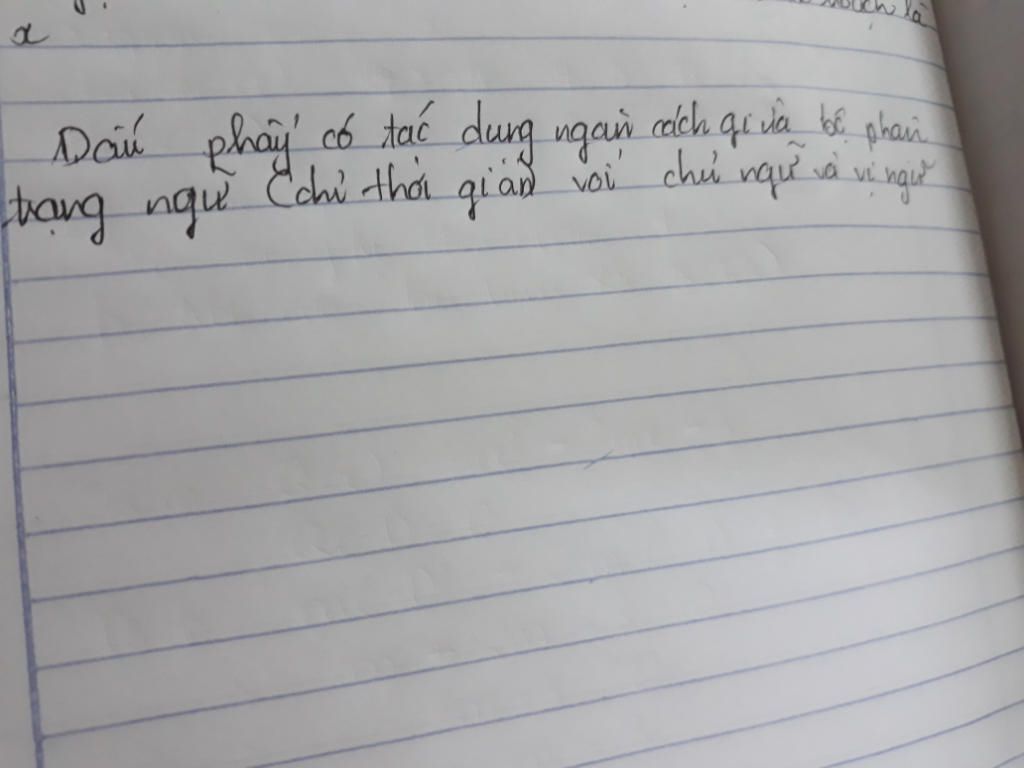 x
Dấu phẩy có tác dụng ngăn cách giữa bộ phận
trạng ngữ (chỉ thời gian với chủ ngữ và vị ngữ